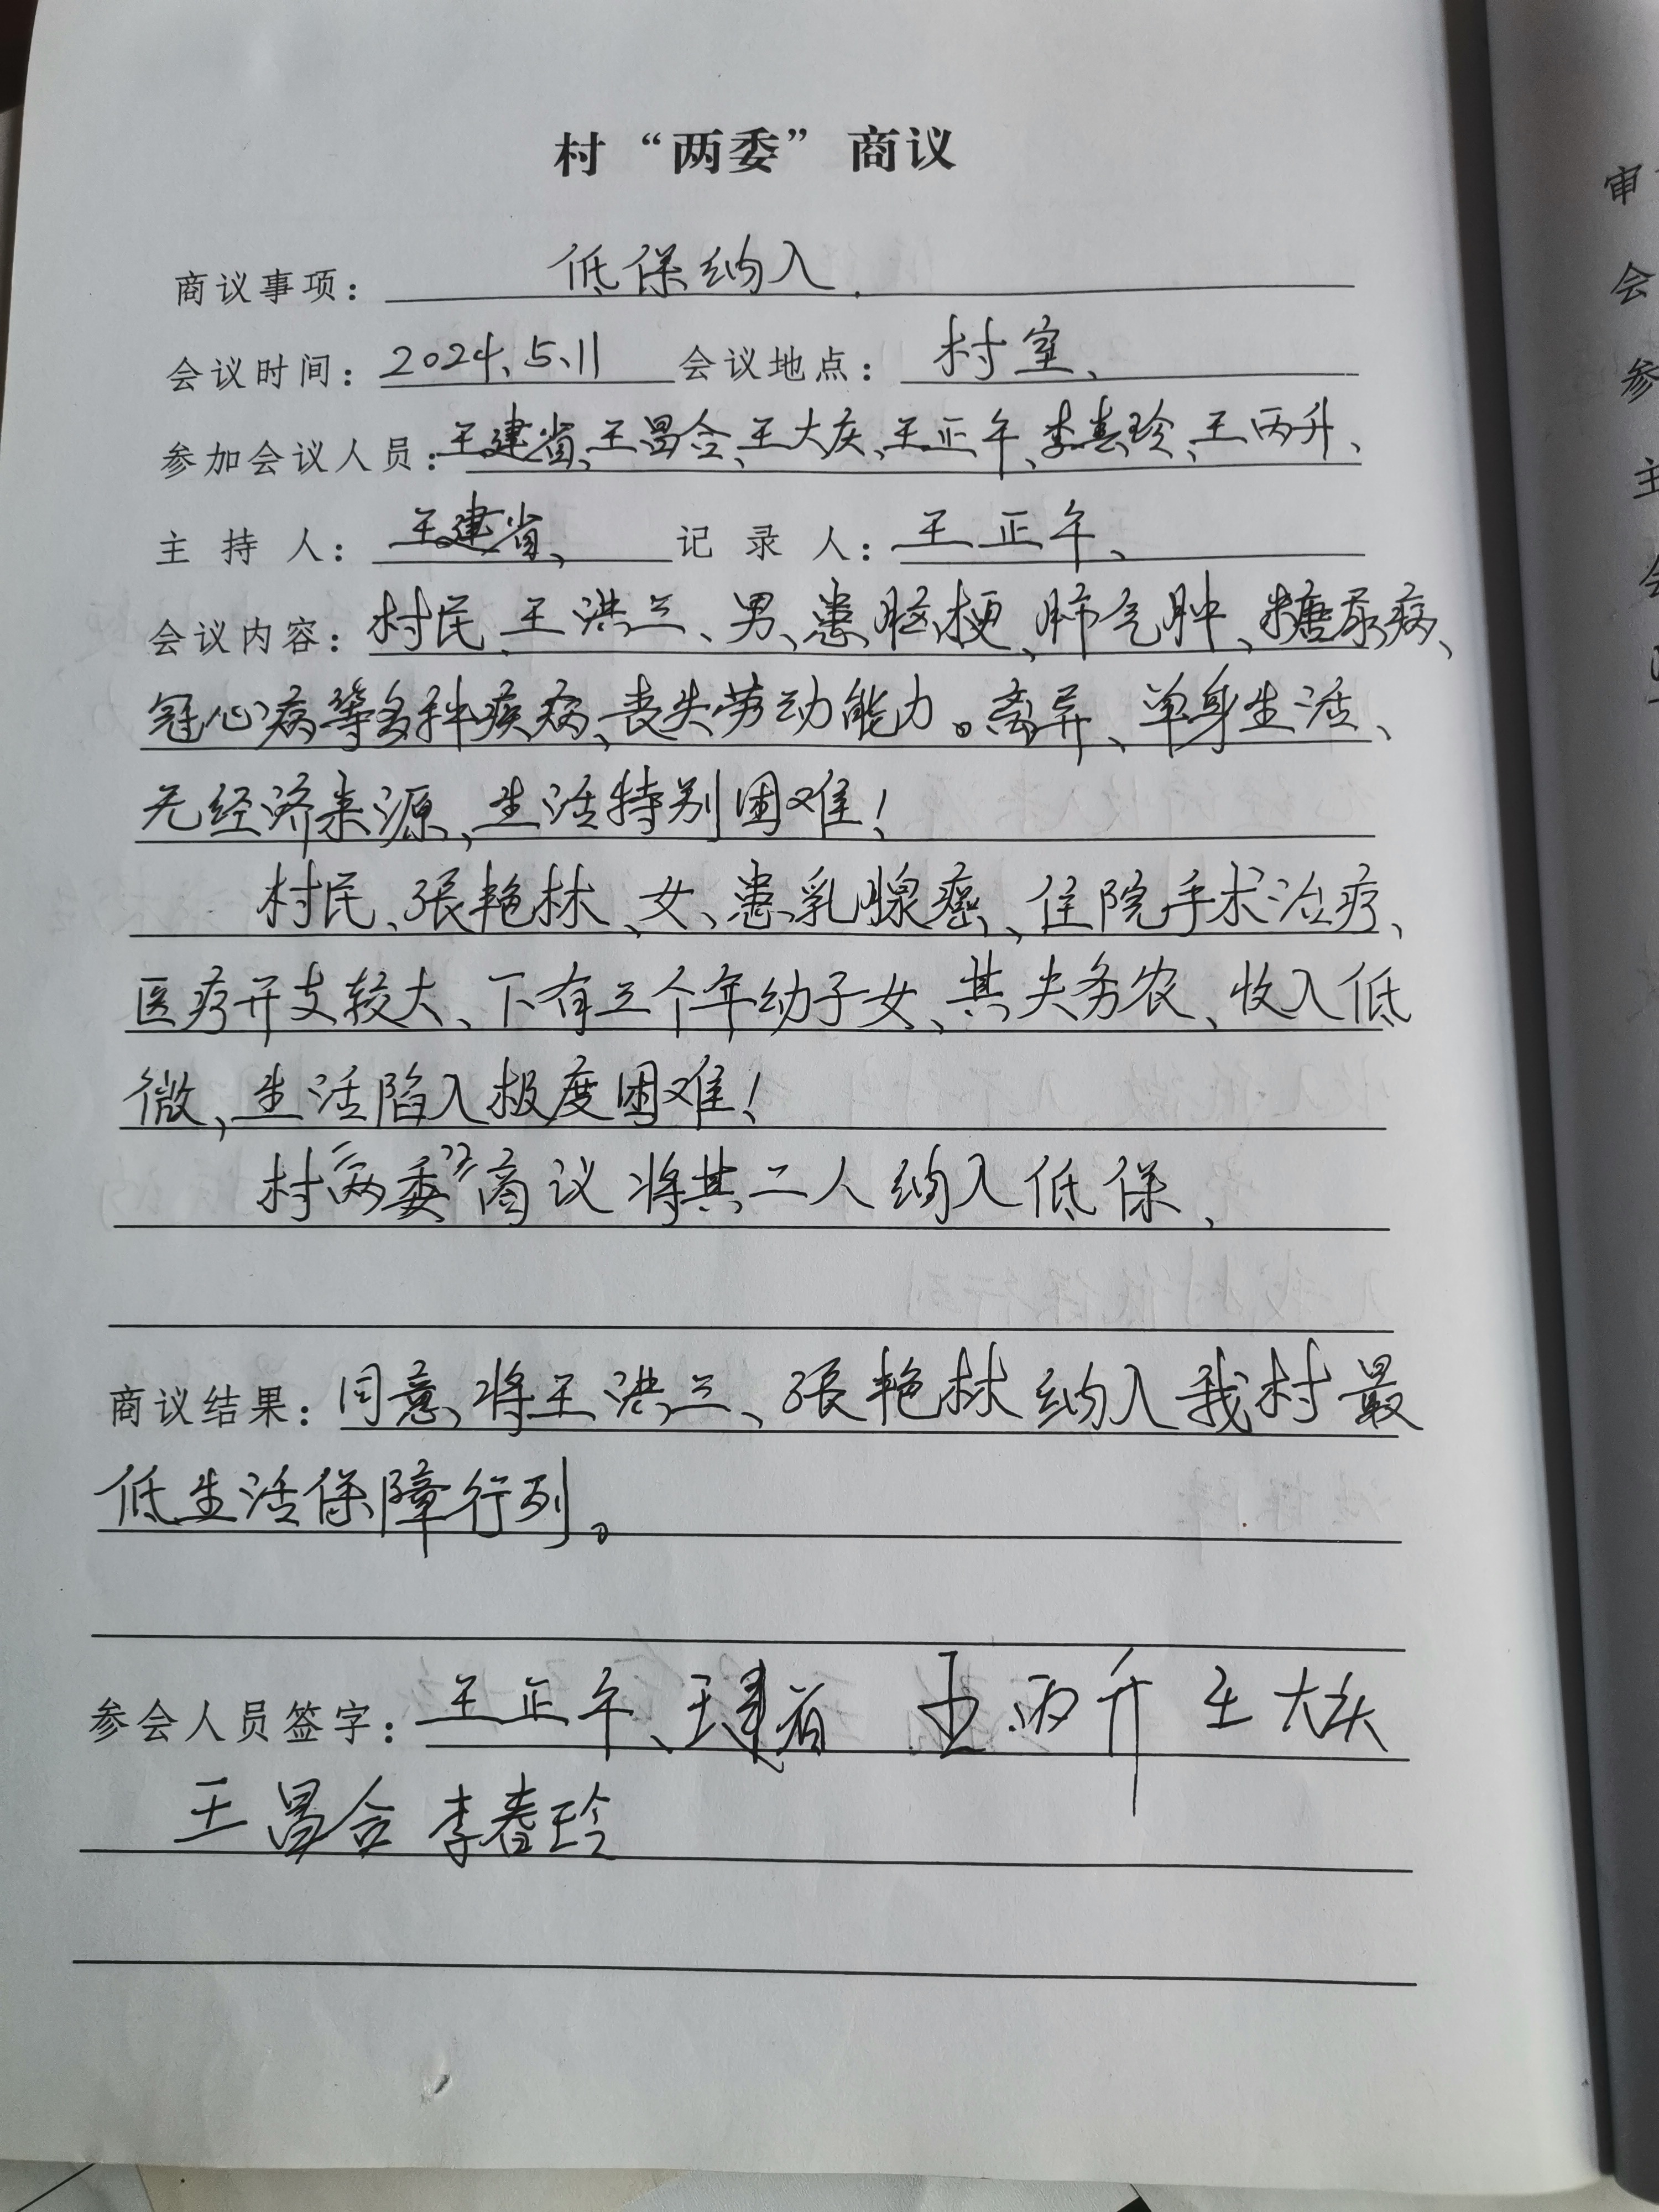 村“两委”商议
商议事项：低保纳入.
会议时间：2024、5、11 会议地点：村室、
参加会议人员：王建省、王昌合、王大庆、王正午、李春玲、王丙升、
主持人：王建省、 记录人：王正午、
会议内容：村民、王洪兰、男、患脑梗、肺气肿、糖尿病、
冠心病等多种疾病、丧失劳动能力。离异、单身生活、
无经济来源、生活特别困难！
村民、张艳林、女、患乳腺癌、住院手术治疗、
医疗开支较大、下有三个年幼子女、其夫务农、收入低
微、生活陷入极度困难！
村“两委”商议将其二人纳入低保、
商议结果：同意、将王洪兰、张艳林纳入我村最
低生活保障行列。
参会人员签字：王正午、王建省 王丙升 王大庆
王昌合 李春玲
审
会
参
主